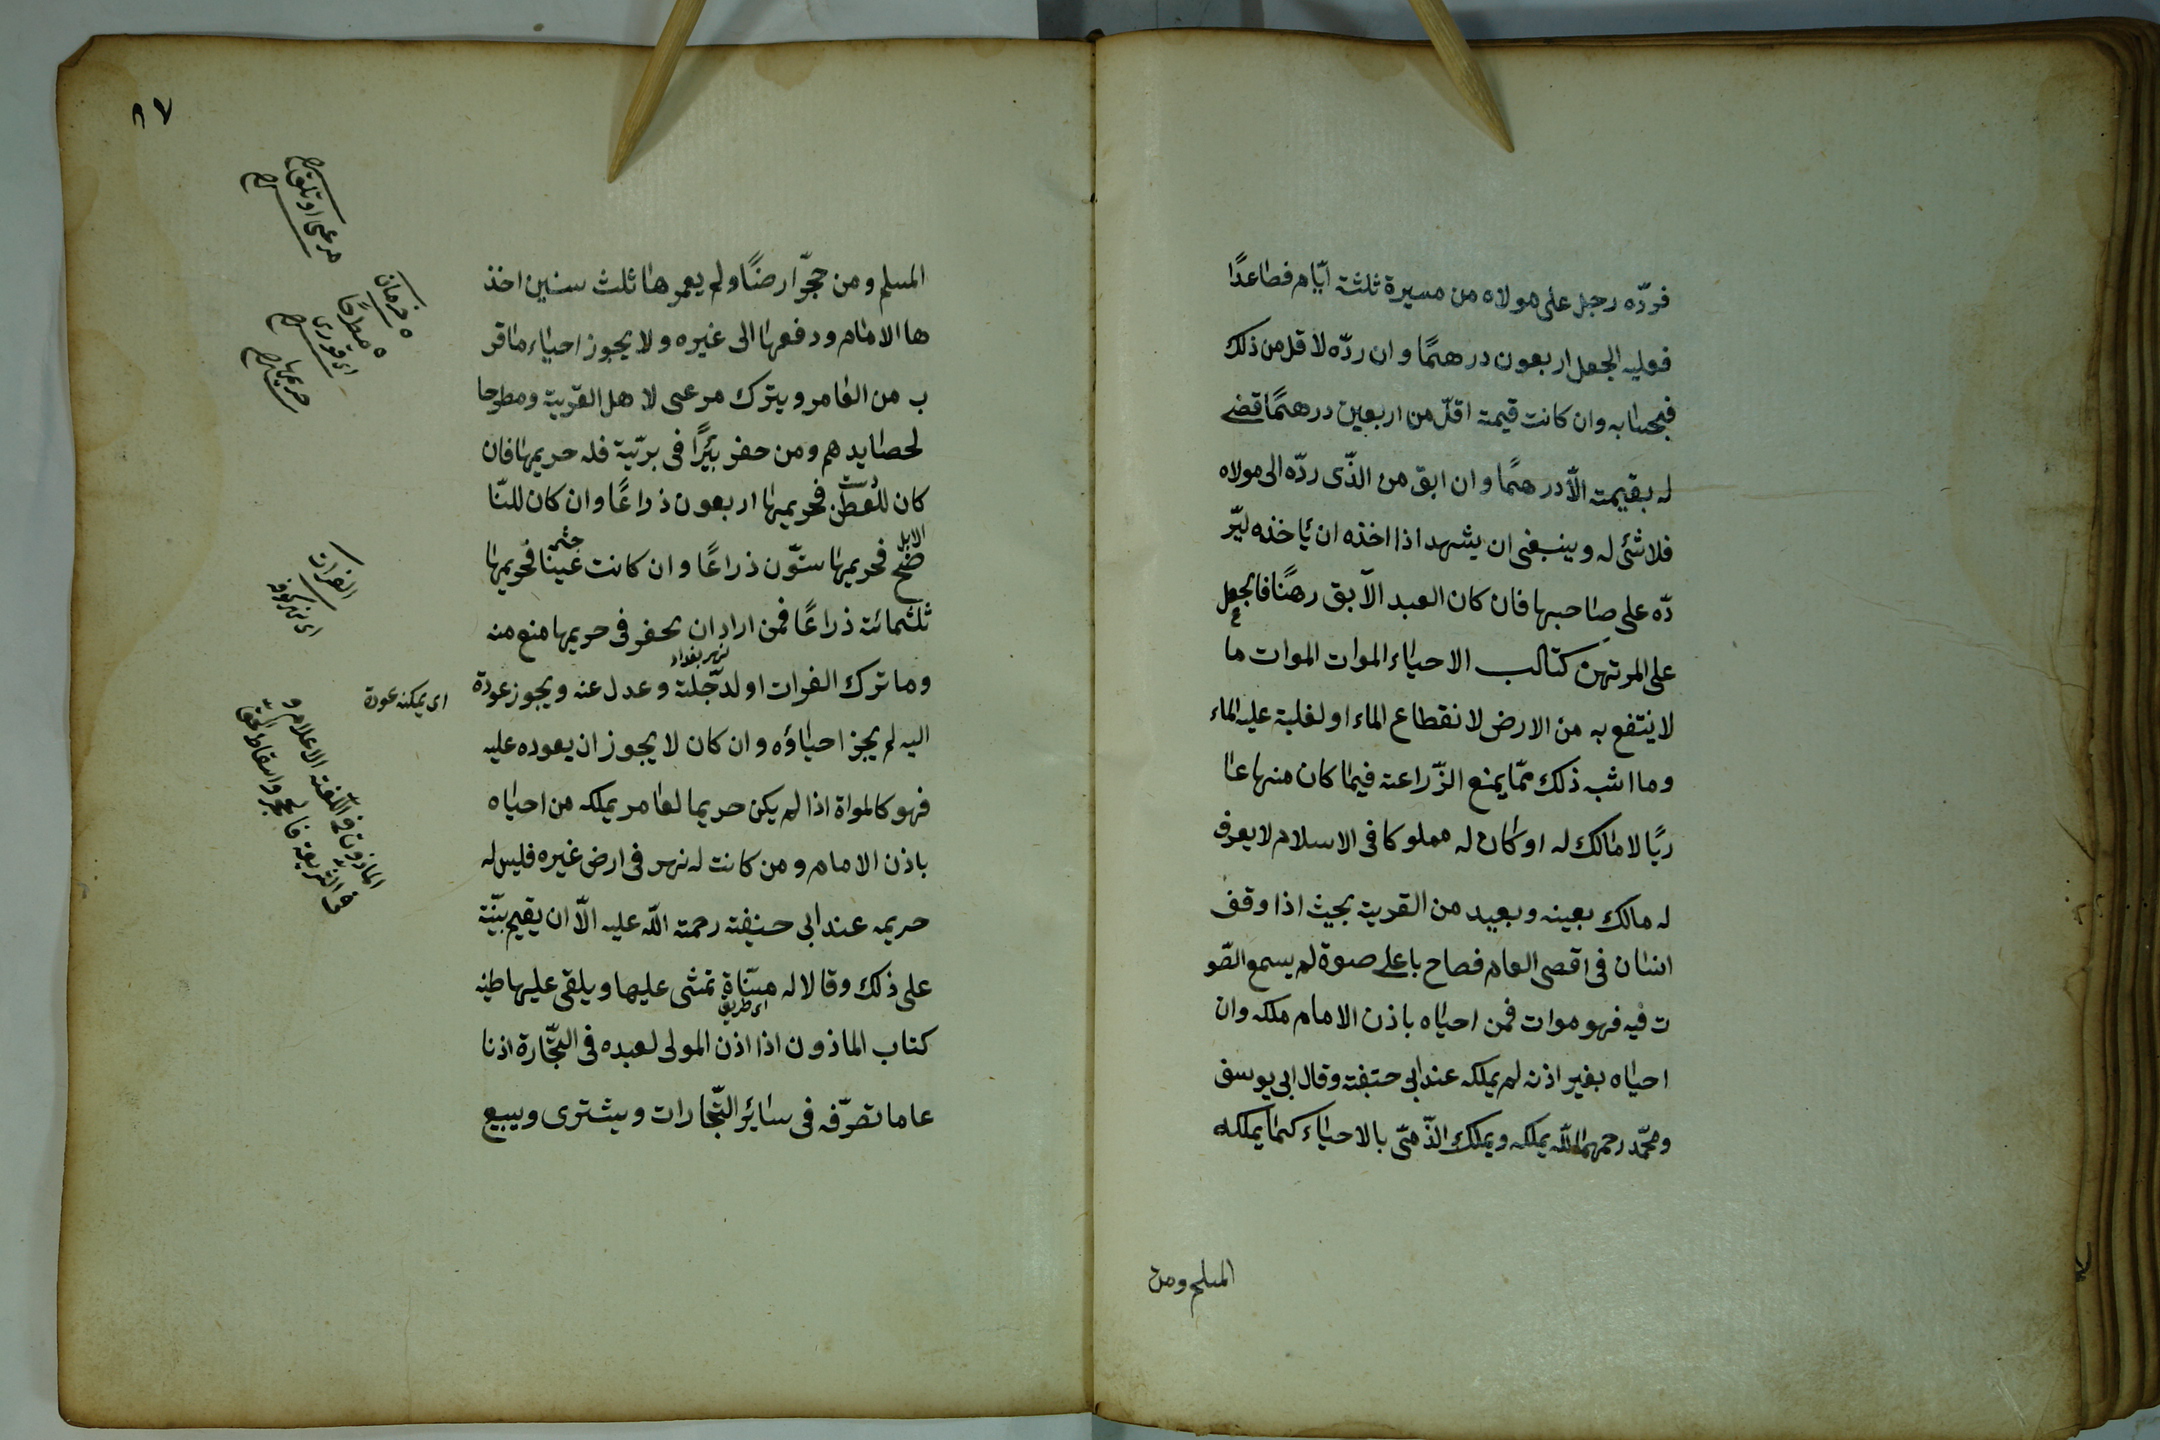 فردّه رجل على مولاه من مسيرة ثلثة ايّام فصاعدًا
فعليه الجعل اربعون درهمًا وان ردّه لاقل من ذلك
فبحسابه وان كانت قيمة اقلّ من اربعين درهمًا قضى
له بقيمته الّا درهمًا وان ابق من الذّى ردّه الى مولاه
فلا شئ له وينبغى ان يشهد اذا اخذه ان ياخذه ليّر
دّه على صاحبها فان كان العبد الآبق رهنًا فالجعل
على المرتهن كتاب الاحياء الموات الموات ما
لا ينتفع به من الارض لانقطاع الماء او لغلبة عليه الماء
وما اشبه ذلك ممّا يمنع الزّراعة فيما كان منها عا
ديًا لا مالك له او كان له مملوكا فى الاسلام لا يعرف
له مالك بعينه وبعيد من القرية بحيث اذا وقف
انسان فى اقصى العام فصاح باعلى صوة لم يسمع الصّو
ت فيه فهو موات فمن احياه باذن الامام ملكه وان
احياه بغير اذنه لم يملكه عند ابى حنيفة وقال ابى يوسف
ومحمّد رحمهما اللّه يملكه ويملك الذّمىّ بالاحياء كما يملكه
المسلم ومن
٨٧
المسلم ومن حجّر ارضًا ولم يعمرها ثلث سنين اخذ
ها الامام ودفعها الى غيره ولا يجوز احياء ما قر
ب من العامر ويترك مرعى لاهل القرية ومطرحا
لحصايدهم ومن حفر بئرًا فى برّية فله حريمها فان
كان للعطن فحريمها اربعون ذراعًا وان كان للنّا
الابل
ضح فحريمها ستّون ذراعًا وان كانت عينا فحريمها
چشمه
ثلثمائة ذراعًا فمن اراد ان يحفر فى حريمها منع منه
نهر بغداد
وما ترك الفرات او لدجّلة وعدل عنه ويجوز عودة
اليه لم يجز احياؤه وان كان لا يجوز ان يعوده عليه
فهو كالمواة اذا لم يكن حريما لعامر يملكه من احياه
باذن الامام ومن كانت له نهر فى ارض غيره فليس له
حريمه عند ابى حنيفة رحمة اللّه عليه الّا ان يقيم بيّنة
على ذلك وقالا له مسنّاة تمشى عليها ويلقى عليها طينه
اى طريق
كتاب الماذون اذا اذن المولى لعبده فى التجّارة اذنا
عاما تصرّفه فى سائر التّجارات ويشترى ويبيع
مرعى اوتلق
خرمان
مطرحًا
اى قورى
حريمها
الفرات
اى نهر كوفه
اى يمكنه عودة
الماذون فى اللّغة الاعلام و
فى الشريعة فك الحجر واسقاط الحق